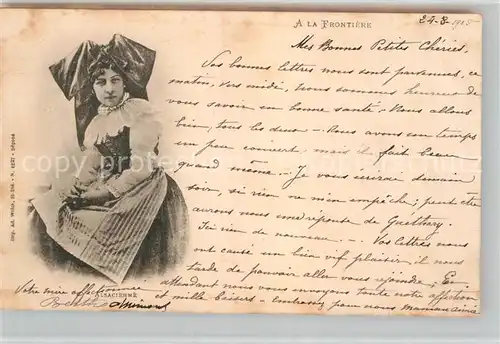 A LA FRONTIÈRE
24-8-1905
Mes Bonnes Petites Chéries,
Vos bonnes lettres nous sont parvenues, ce
matin, vers midi, nous sommes heureux de
vous savoir en bonne santé. Nous allons
bien, tous les deux - Nous avons un temps
un peu couvert mais il fait bon
quand même - Je vous écrirai demain
soir, si rien ne m'en empêche; peut être
aurons nous une réponse de Guéthary.
Ici rien de nouveau - Vos lettres nous
ont causé un bien vif plaisir, il nous
tarde de pouvoir aller vous rejoindre; En
attendant nous vous envoyons toute notre affection
et mille baisers - pour nous
Votre mère affectionnée
ALSACIENNE
Imp. Ad. Weick, St-Dié. - Déposé